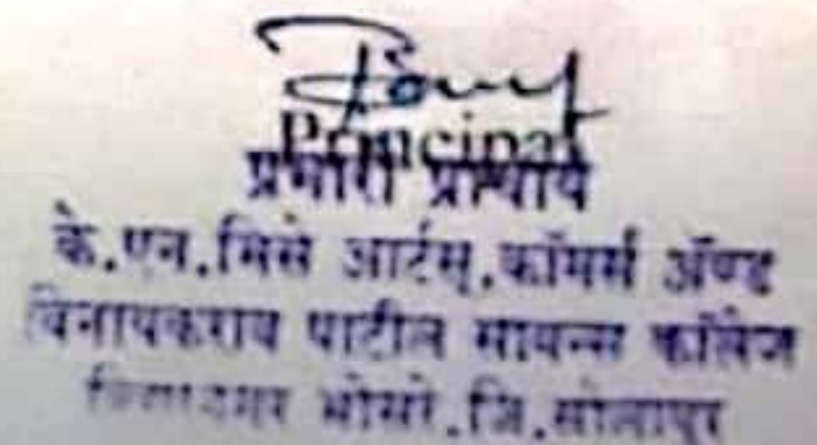 Principal
प्रभारी प्राचार्य
के.एन.भिसे आर्टस्,कॉमर्स ॲण्ड
विनायकराव पाटील सायन्स कॉलेज
भोसरे.जि.सोलापूर